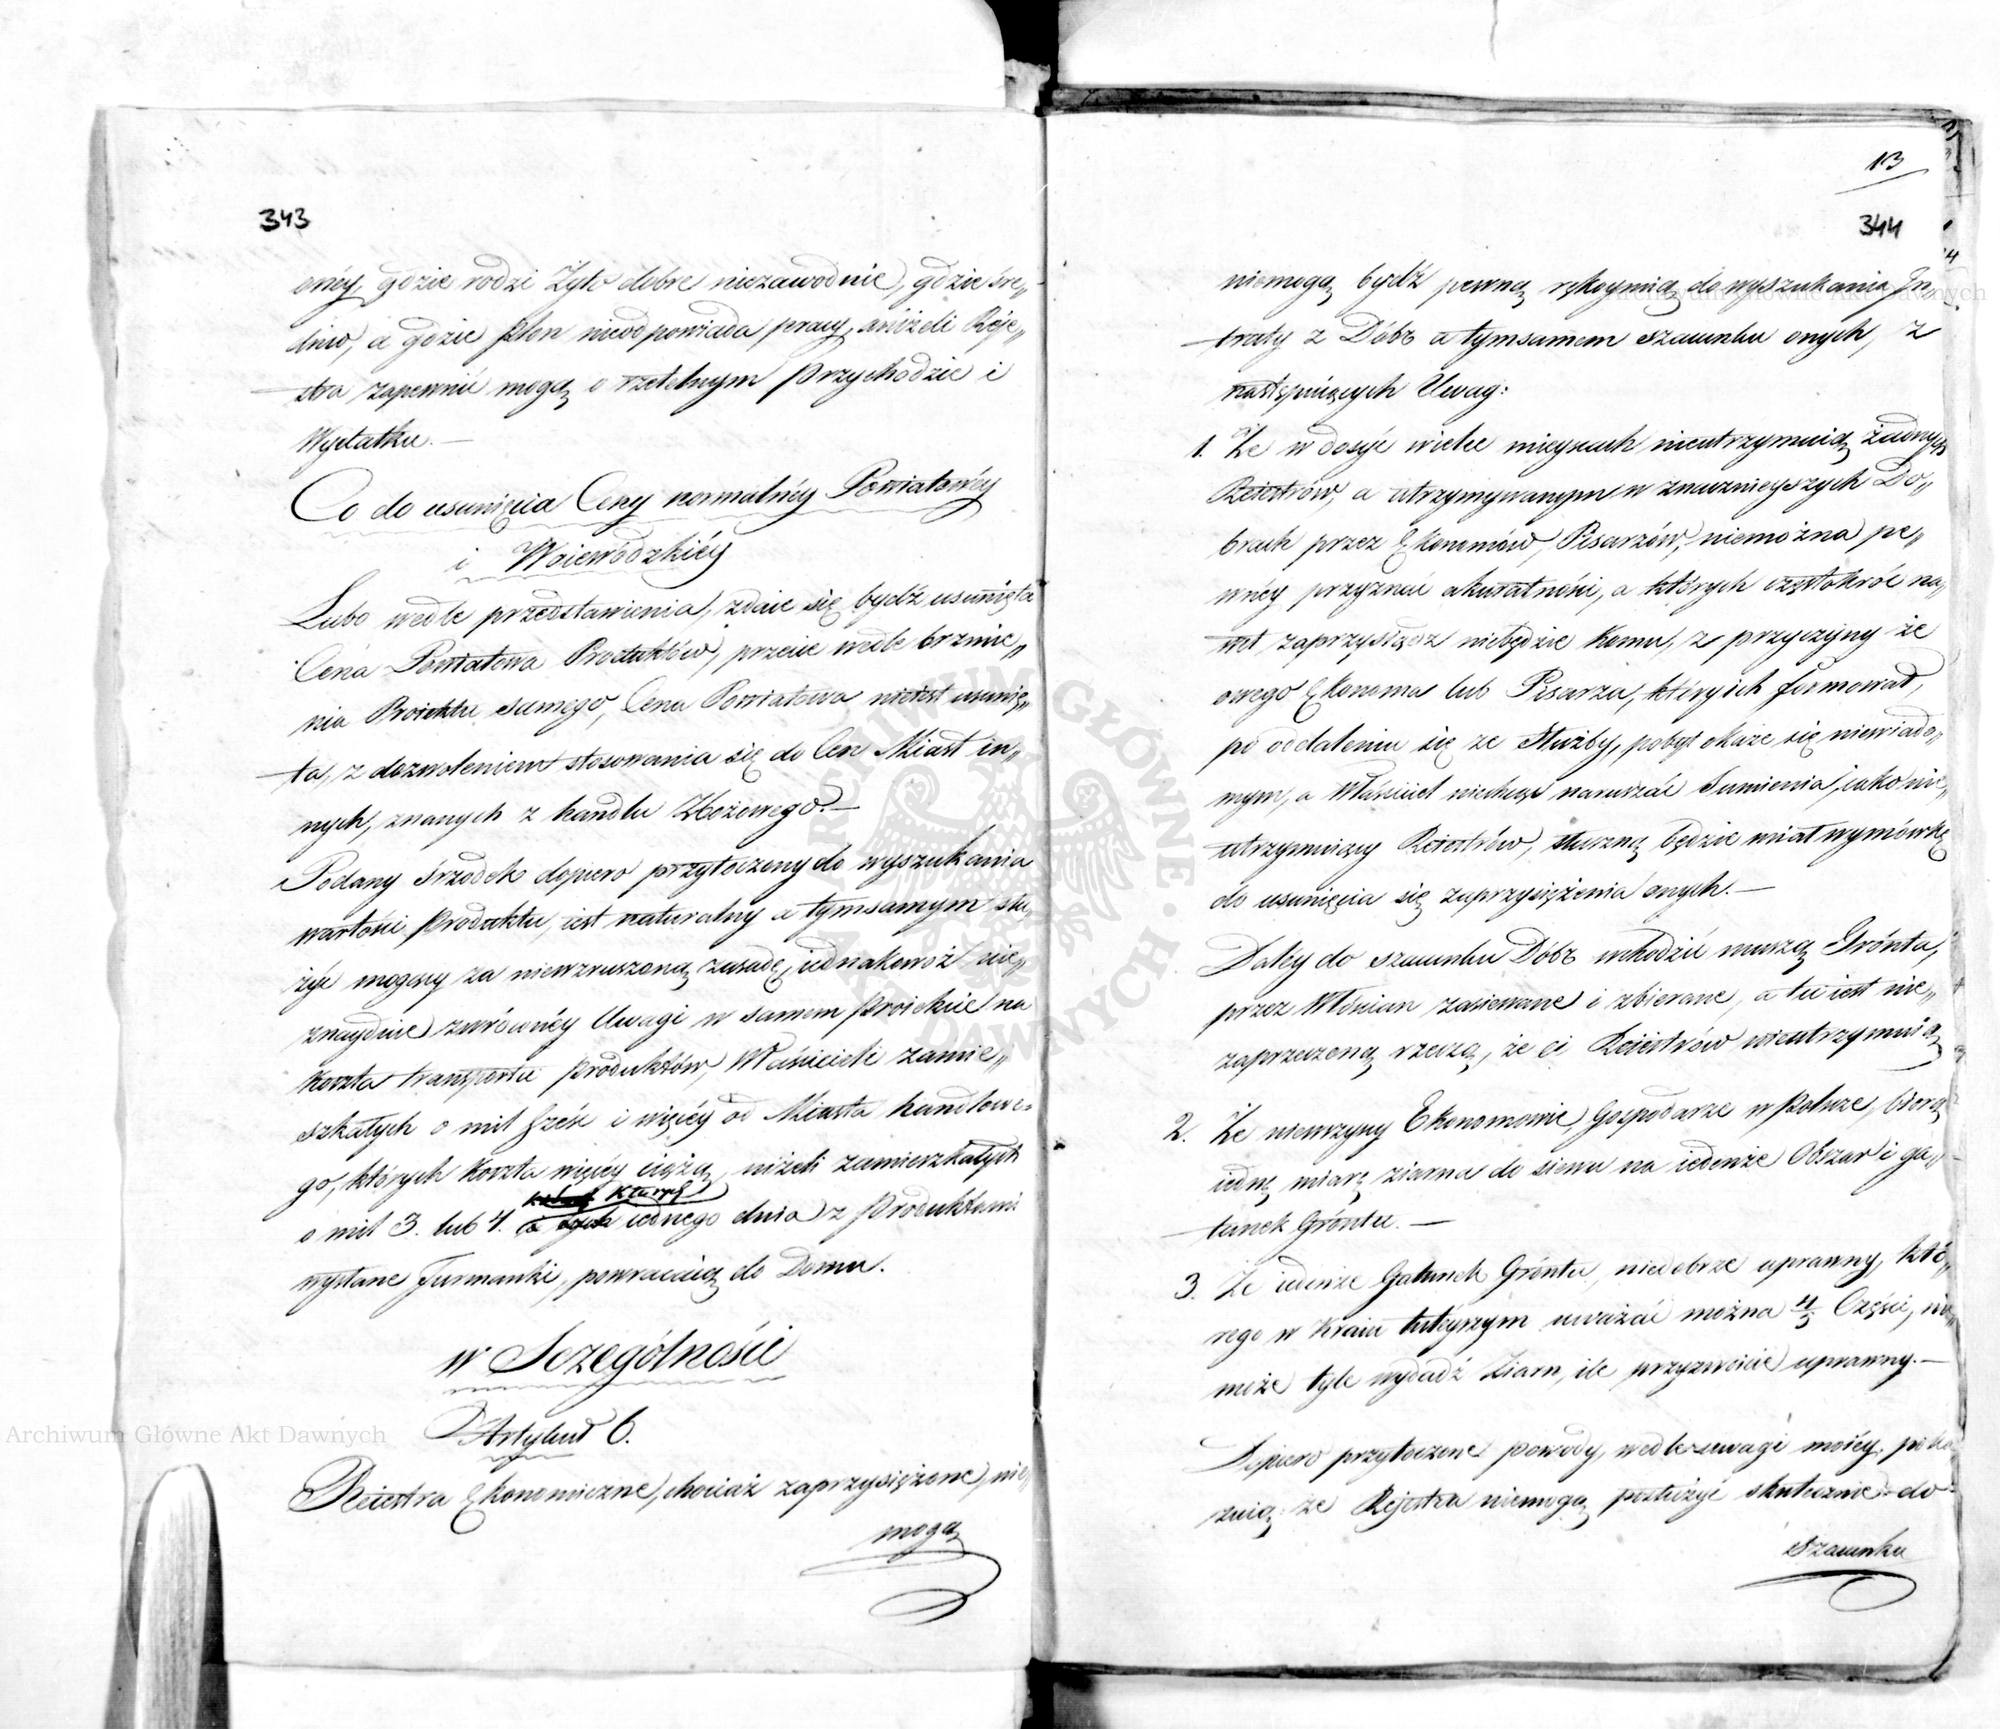 343
onéy, gdzie rodzi Żyto dobre niezawodnie, gdzie śre„
dnio, a gdzie plon nieodpowiada pracy, aniżeli Reje„
stra zapewnić mogą o rzetelnym Przychodzie i
Wydatku. —
Co do usunięcia Ceny normalnéy Powiatowéy
i Woiewódzkiéy
Lubo wedle przedstawienia, zdaie się bydź usunięta
Cena Powiatowa Produktów, przecie wedle brzmie„
nia Proiektu samego, Cena Powiatowa nieiest usunię„
ta, z dozwoleniem stosowania się do Cen Miast in„
nych, znanych z handlu Zbożowego. —
Podany śrzodek dopiero przytoczony do wyszukania
wartości Produktu, iest naturalny a tymsamym słu„
żyć mogący za niewzruszoną zasadę, iednakowoż nie„
znayduie zwrównéy Uwagi w samem Proiekcie na
koszta transportu produktów, Właścicieli zamie„
szkałych o mil sześć i więcéy od Miasta handlowe„
go, których koszta więcéy ciążą, niżeli zamieszkałych
których
o mil 3. lub 4. iednego dnia z Produktami
wysłane Furmanki, powracaią do Domu.
w Szczególności
Artykuł 6.
Reiestra Ekonomiczne, chociaż zaprzysiężone, nie„
mogą
113
344
niemogą bydź pewną rękoymią do wyszukania In„
traty z Dóbr a tymsamem szacunku onych, z
następuiących Uwag:
1. Że w dosyć wielu mieyscach nieutrzymuią żadnych
Reiestrów, a utrzymywanym w znacznieyszych Do„
brach przez Ekonomów, Pisarzów, niemożna pe„
wnéy przyznać akuratności, a których częstokroć na„
wet, zaprzysiędz niebędzie komu, z przyczyny że
owego Ekonoma lub Pisarza, który ich formował,
po oddaleniu się ze Służby, pobyt okaże się niewiado„
mym, a Właściciel niechcąc naruszać Sumienia, iako nie„
utrzymuiący Reiestrów, słuszną będzie miał wymówkę
do usunięcia się zaprzysiężenia onych. —
Daléy do szacunku Dóbr wchodzić muszą Grónta,
przez Włościan zasiewane i zbierane, a tu iest nie„
zaprzeczoną rzeczą, że ci Reiestrów nieutrzymuią
2. Że niewszyscy Ekonomowie, Gospodarze w Polsze, biorą
iedną miarę ziarna do siewu na iedenże Obszar i ga„
tunek Gróntu. —
3. Że iedenże Gatunek Gróntu, niedobrze uprawny, któ„
rego w kraiu tuteyszym uważać można 4/5 Części, nie„
może tyle wydadź Ziarn, ile przyzwoicie uprawny. —
Dopiero przytoczone powody, wedle uwagi moiéy, poka„
zuią: że Rejestra niemogą posłużyć skutecznie do
szacunku
Archiwum Główne Akt Dawnych
Archiwum Główne Akt Dawnych
ARCHIWUM GŁÓWNE AKT DAWNYCH